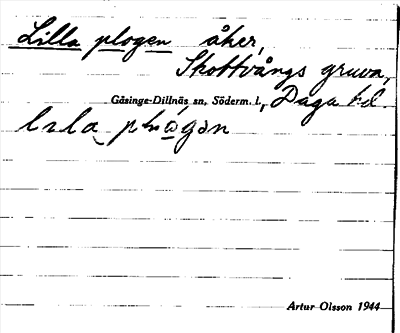 Lilla plogen åker,
Skottvångs gruva,
Gåsinge-Dillnäs sn, Söderm. l., Daga hd.
lɩla
Artur Olsson 1944